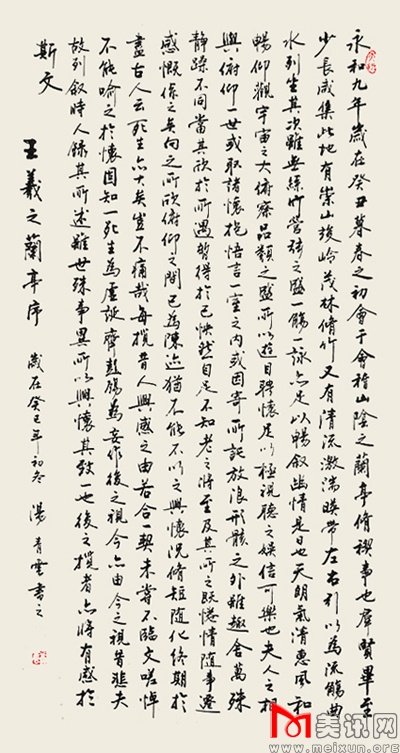 永和九年歲在癸丑暮春之初會于會稽山陰之蘭亭脩禊事也群賢畢至
少長咸集此地有崇山峻岭茂林脩竹又有清流激湍暎帶左右引以為流觴曲
水列坐其次雖無絲竹管弦之盛一觴一詠亦足以暢叙幽情是日也天朗氣清惠風和
暢仰觀宇宙之大俯察品類之盛所以遊目騁懷足以極視聽之娛信可樂也夫人之相
與俯仰一世或取諸懷抱悟言一室之內或因寄所託放浪形骸之外雖趣舍萬殊
靜躁不同當其欣於所遇暫得於己怏然自足不知老之將至及其所之既惓情隨事遷
感慨係之矣向之所欣俯仰之間已為陳迹猶不能不以之興懷況脩短隨化終期於
盡古人云死生亦大矣豈不痛哉每攬昔人興感之由若合一契未嘗不臨文嗟悼
不能喻之於懷固知一死生為虛誕齊彭殤為妄作後之視今亦由今之視昔悲夫
故列叙時人錄其所述雖世殊事異所以興懷其致一也後之攬者亦將有感於
斯文
王羲之蘭亭序 歲在癸巳年初冬 湯青雲書之
美讯网
www.meixun.org